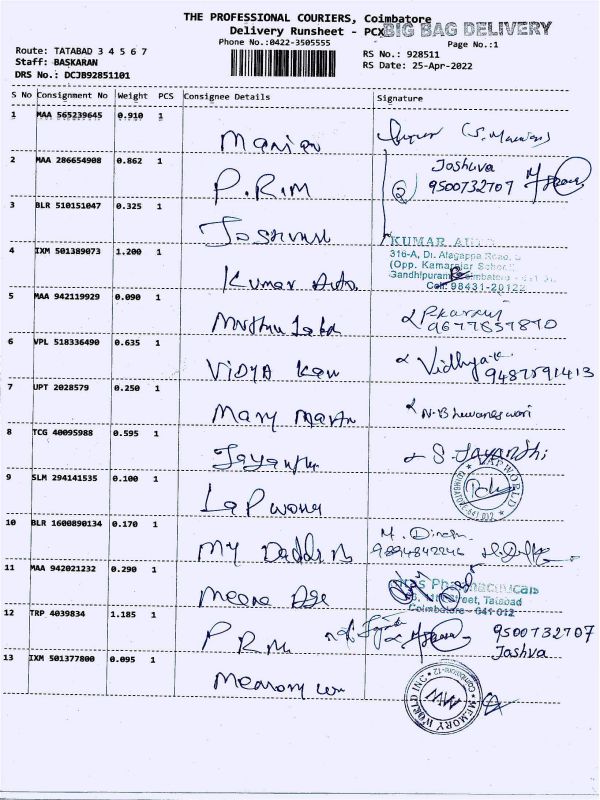 THE PROFESSIONAL COURIERS, Coimbatore
Delivery Runsheet - PCX BIG BAG DELIVERY
Phone No.:0422-3505555 Page No.:1
Route: TATABAD 3 4 5 6 7 RS No.: 928511
Staff: BASKARAN RS Date: 25-Apr-2022
DRS No.: DCJB92851101
S No Consignment No Weight PCS Consignee Details Signature
1 MAA 565239645 0.910 1
Manian
2 MAA 286654908 0.862 1 Joshuva
P.R.M 2 9500732707
3 BLR 510151047 0.325 1
KUMAR AUTO
4 IXM 501389073 1.200 1 316-A, Dr. Alagappa Road,
(Opp. Kamarajar School)
Kumar Auto Gandhipuram, Coimbatore
Cell: 98431-20122
5 MAA 942119929 0.090 1
9677857870
6 VPL 518336490 0.635 1 Vidhya
VIDYA 9487591413
7 UPT 2028579 0.250 1
Mary N. Bhuvaneswari
8 TCG 40095988 0.595 1 S. Jayanthi
9 SLM 294141535 0.100 1 LAP WORLD
COIMBATORE-641 012
10 BLR 1600890134 0.170 1 M. Dinesh
My 9894842246
11 MAA 942021232 0.290 1 Pharmaceuticals
Meena Street, Tatabad
Coimbatore - 641 012
12 TRP 4039834 1.185 1 9500732707
P R M Joshva
13 IXM 501377800 0.095 1
MEMORY WORLD INC
Coimbatore-12
MW